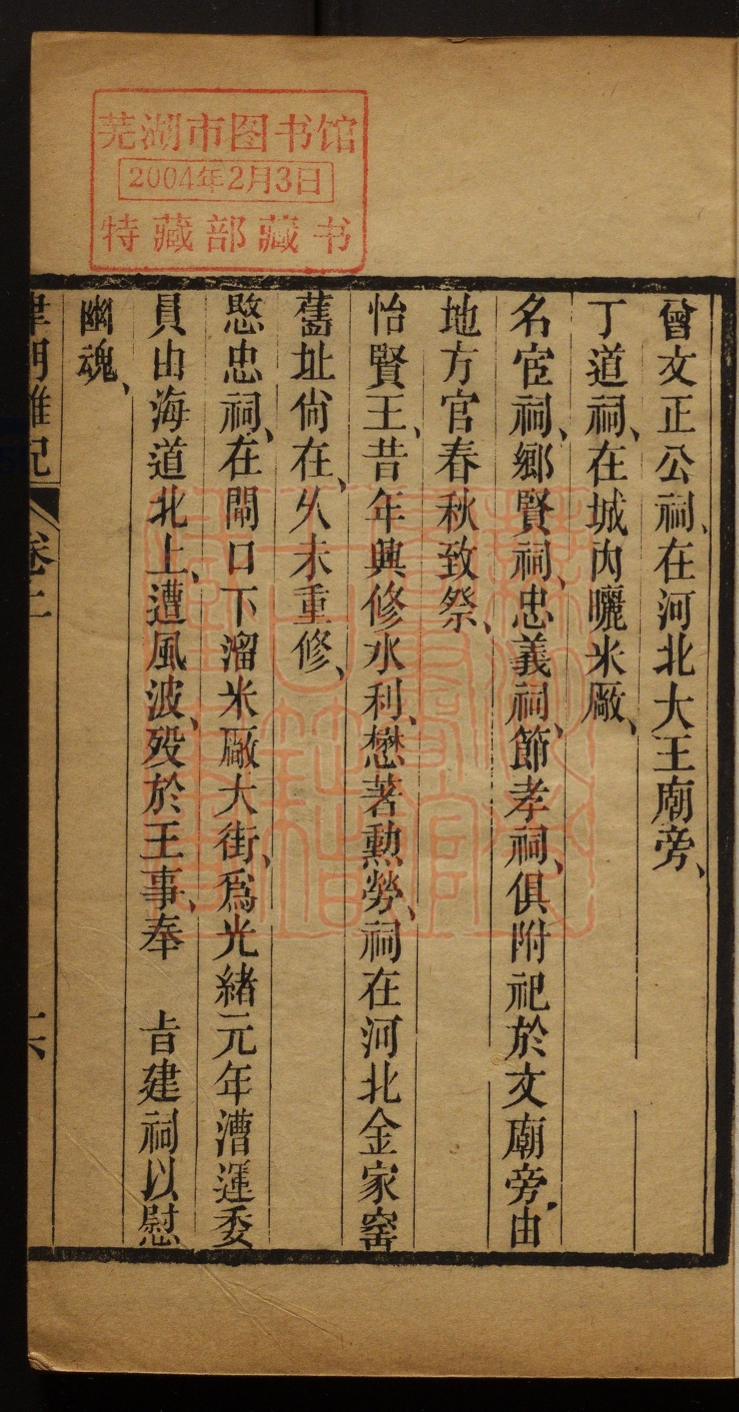 芜湖市图书馆
2004年2月3日
特藏部藏书
曾文正公祠、在河北大王廟旁、
丁道祠、在城內曬米廠、
名宦祠、鄉賢祠、忠義祠、節孝祠、俱附祀於文廟旁、由
地方官春秋致祭、
怡賢王、昔年興修水利、懋著勲勞、祠在河北金家窰
舊址尙在、乆未重修、
愍忠祠、在閘口下溜米廠大街、爲光緒元年漕運委
員由海道北上、遭風波、歿於王事、奉　旨建祠以慰
幽魂、
津門雜記　卷上